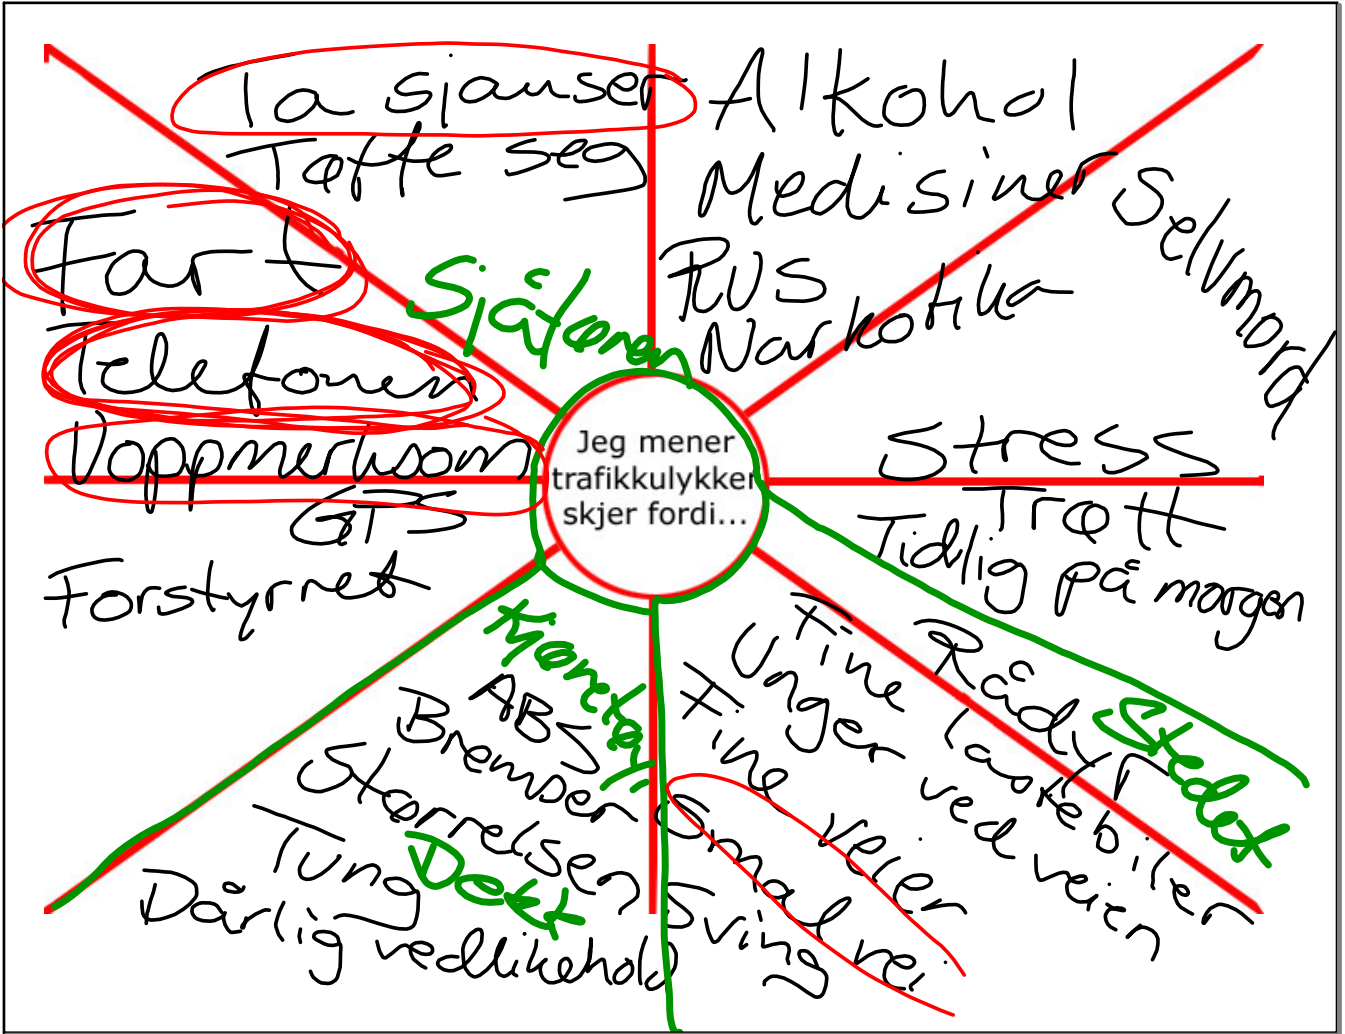 Ta sjanser
Tøffe seg
Fart
Telefonen
Uoppmerksom
GPS
Forstyrret
Sjåføren
Alkohol
Medisiner
RUS
Narkotika
Selvmord
Jeg mener
trafikkulykker
skjer fordi...
Stress
Trøtt
Tidlig på morgen
Stedet
Rådyr
Fine lastebiler
Unger ved veien
Fine veier
Smal vei
Sving
Kjøretøy
ABS
Bremser
Størrelsen
Tung
Dekk
Dårlig vedlikehold